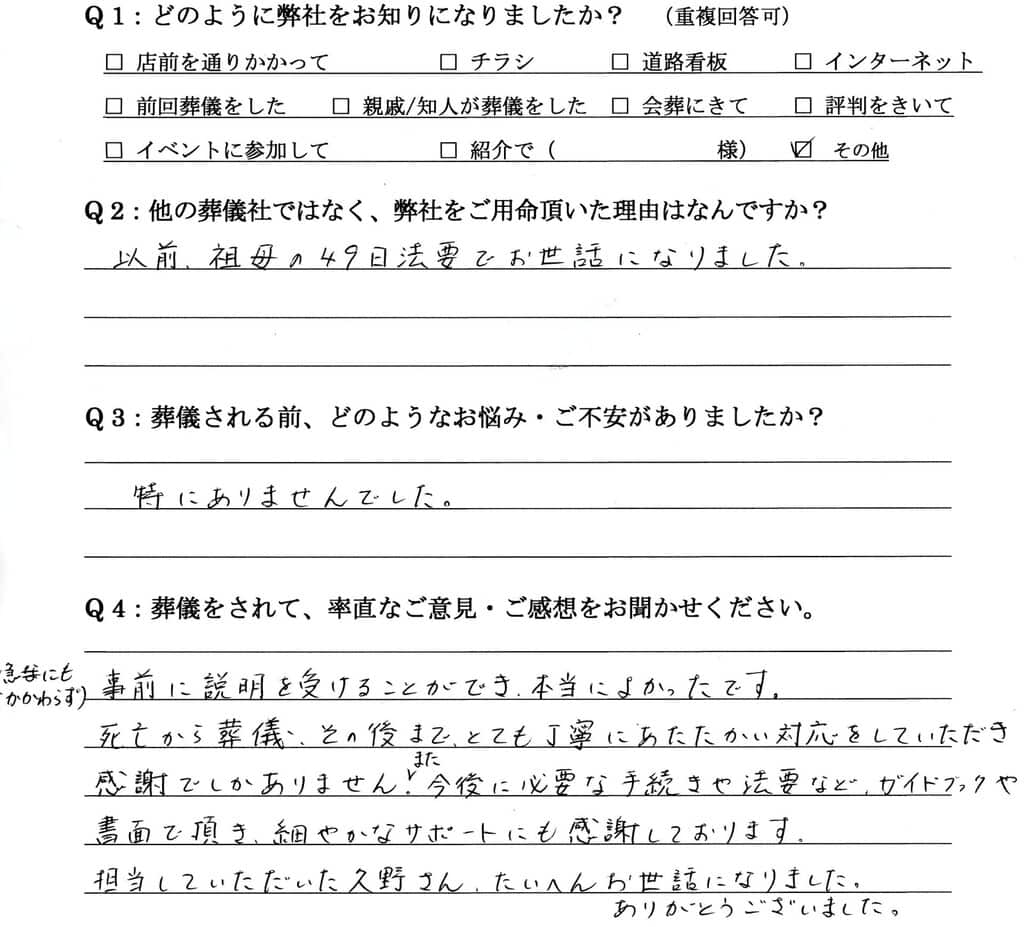 Q1：どのように弊社をお知りになりましたか？　（重複回答可）
□ 店前を通りかかって　□ チラシ　□ 道路看板　□ インターネット
□ 前回葬儀をした　□ 親戚/知人が葬儀をした　□ 会葬にきて　□ 評判をきいて
□ イベントに参加して　□ 紹介で（　　　様）　☑ その他
Q2：他の葬儀社ではなく、弊社をご用命頂いた理由はなんですか？
以前、祖母の49日法要でお世話になりました。
Q3：葬儀される前、どのようなお悩み・ご不安がありましたか？
特にありませんでした。
Q4：葬儀をされて、率直なご意見・ご感想をお聞かせください。
急な にも
かかわらず)
事前に説明を受けることができ、本当によかったです。
死亡から葬儀、その後まで、とても丁寧にあたたかい対応をしていただき
また
感謝でしかありません！今後に必要な手続きや法要など、ガイドブックや
書面で頂き、細やかなサポートにも感謝しております。
担当していただいた久野さん、たいへんお世話になりました。
ありがとうございました。